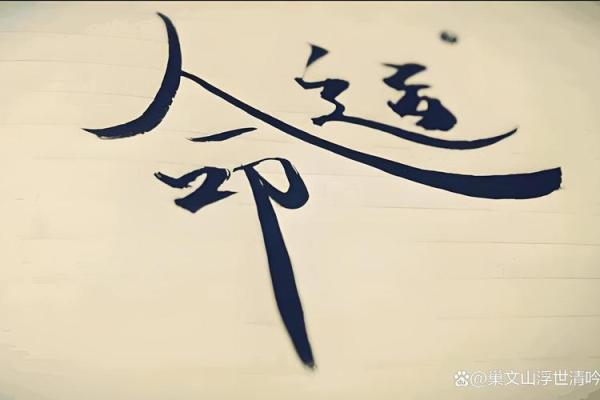 命运
@巢文山浮世清吟